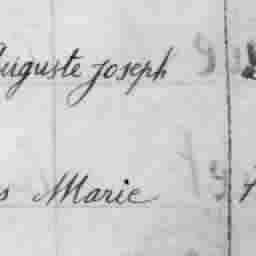 Auguste Joseph
s Marie